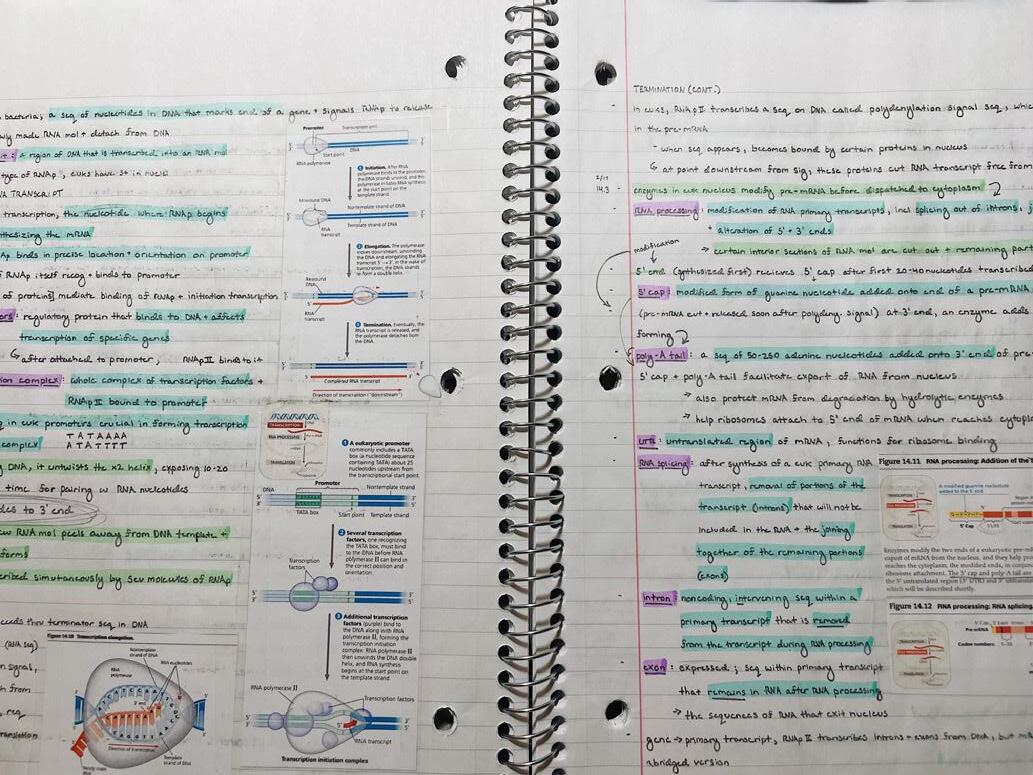 bacteria; a seq of nucleotides in DNA that marks end of a gene + signals RNAp to release
newly made RNA mol + detach from DNA
it: a region of DNA that is transcribed into an RNA mol
type of RNAp, euks have 3+ in nuclei
TRANSCRIPT
transcription, the nucleotide where RNAp begins
synthesizing the mRNA
binds in precise location + orientation on promoter
RNAp itself recog + binds to promoter
of proteins] mediate binding of RNAp + initiation transcription
ors: regulatory protein that binds to DNA + affects
transcription of specific genes
↳ after attached to promoter, RNAp II binds to it
ion complex: whole complex of transcription factors +
RNAp II bound to promoter
in euk promoters crucial in forming transcription
complex TATAAAA
ATATTTT
DNA, it untwists the x2 helix, exposing 10-20
time for pairing w RNA nucleotides
to 3' end
new RNA mol peels away from DNA template +
forms
simutaneously by sev molecules of RNAp
thru terminator seq in DNA
(RNA seq)
signal,
from
translation
Promoter Transcription unit
5' 3'
3' 5'
Start point DNA
RNA polymerase
1 Initiation. After RNA
polymerase binds to the promoter,
the DNA strands unwind, and the
polymerase initiates RNA synthesis
at the start point on the
template strand.
Unwound DNA
Nontemplate strand of DNA
Template strand of DNA
RNA transcript
2 Elongation. The polymerase
moves downstream, unwinding
the DNA and elongating the RNA
transcript 5' → 3'. In the wake of
transcription, the DNA strands
re-form a double helix.
Rewound DNA
RNA transcript
3 Termination. Eventually, the
RNA transcript is released, and
the polymerase detaches from
the DNA.
Completed RNA transcript
Direction of transcription ("downstream")
TRANSCRIPTION
RNA PROCESSING
TRANSLATION
1 A eukaryotic promoter
commonly includes a TATA
box (a nucleotide sequence
containing TATA) about 25
nucleotides upstream from the
transcriptional start point.
DNA Promoter Nontemplate strand
5' 3'
3' 5'
TATA box Start point Template strand
2 Several transcription
factors, one recognizing
the TATA box, must bind
to the DNA before RNA
polymerase II can bind in
the correct position and
orientation.
Transcription factors
3 Additional transcription
factors (purple) bind to
the DNA along with RNA
polymerase II, forming the
transcription initiation
complex. RNA polymerase II
then unwinds the DNA double
helix, and RNA synthesis
begins at the start point on
the template strand.
RNA polymerase II
Transcription factors
RNA transcript
Transcription initiation complex
Figure 14.10 Transcription elongation.
Nontemplate strand of DNA
RNA nucleotides
RNA polymerase
3' end
Direction of transcription
Template strand of DNA
Newly made RNA
TERMINATION (CONT.)
in euks, RNAp II transcribes a seq on DNA called polyadenylation signal seq, whic
in the pre-mRNA
- when seq appears, becomes bound by certain proteins in nucleus
↳ at point downstream from sig, these proteins cut RNA transcript free from
2/17
14.3 - enzymes in euk nucleus modify pre-mRNA before dispatched to cytoplasm
RNA processing: modification of RNA primary transcripts, incl splicing out of introns,
+ alteration of 5' + 3' ends
modification → certain interior sections of RNA mol are cut out + remaining part
5' end (synthesized first) recieves 5' cap after first 20-40 nucleotides transcribed
5' cap: modified form of guanine nucleotide added onto end of a pre-mRNA
(pre-mRNA cut + released soon after polyadeny. signal) at 3' end, an enzyme adds
forming
poly-A tail: a seq of 50-250 adenine nucleotides added onto 3' end of pre-
5' cap + poly-A tail facilitate export of RNA from nucleus
→ also protect mRNA from degradation by hydrolytic enzymes
→ help ribosomes attach to 5' end of mRNA when reaches cytopl
UTR: untranslated region of mRNA, functions for ribosome binding
RNA splicing: after synthesis of a euk primary RNA
transcript, removal of portions of the
transcript (introns) that will not be
included in the RNA + the joining
together of the remaining portions
(exons)
intron: noncoding, intervening seq within a
primary transcript that is removed
from the transcript during RNA processing
exon: expressed; seq within primary transcript
that remains in RNA after RNA processing
→ the sequences of RNA that exit nucleus
gene → primary transcript, RNAp II transcribes introns + exons from DNA, but
abridged version
Figure 14.11 RNA processing: Addition of the
A modified guanine nucleotide
added to the 5' end
5' Cap 5' UTR
Enzymes modify the two ends of a eukaryotic pre-m
export of mRNA from the nucleus, and they help pro
reaches the cytoplasm, the modified ends, in conjunc
ribosome attachment. The 5' cap and poly-A tail are
the 5' untranslated region (5' UTR) and 3' untransl
which will be described shortly.
Figure 14.12 RNA processing: RNA splicing
Pre-mRNA
Codon numbers: